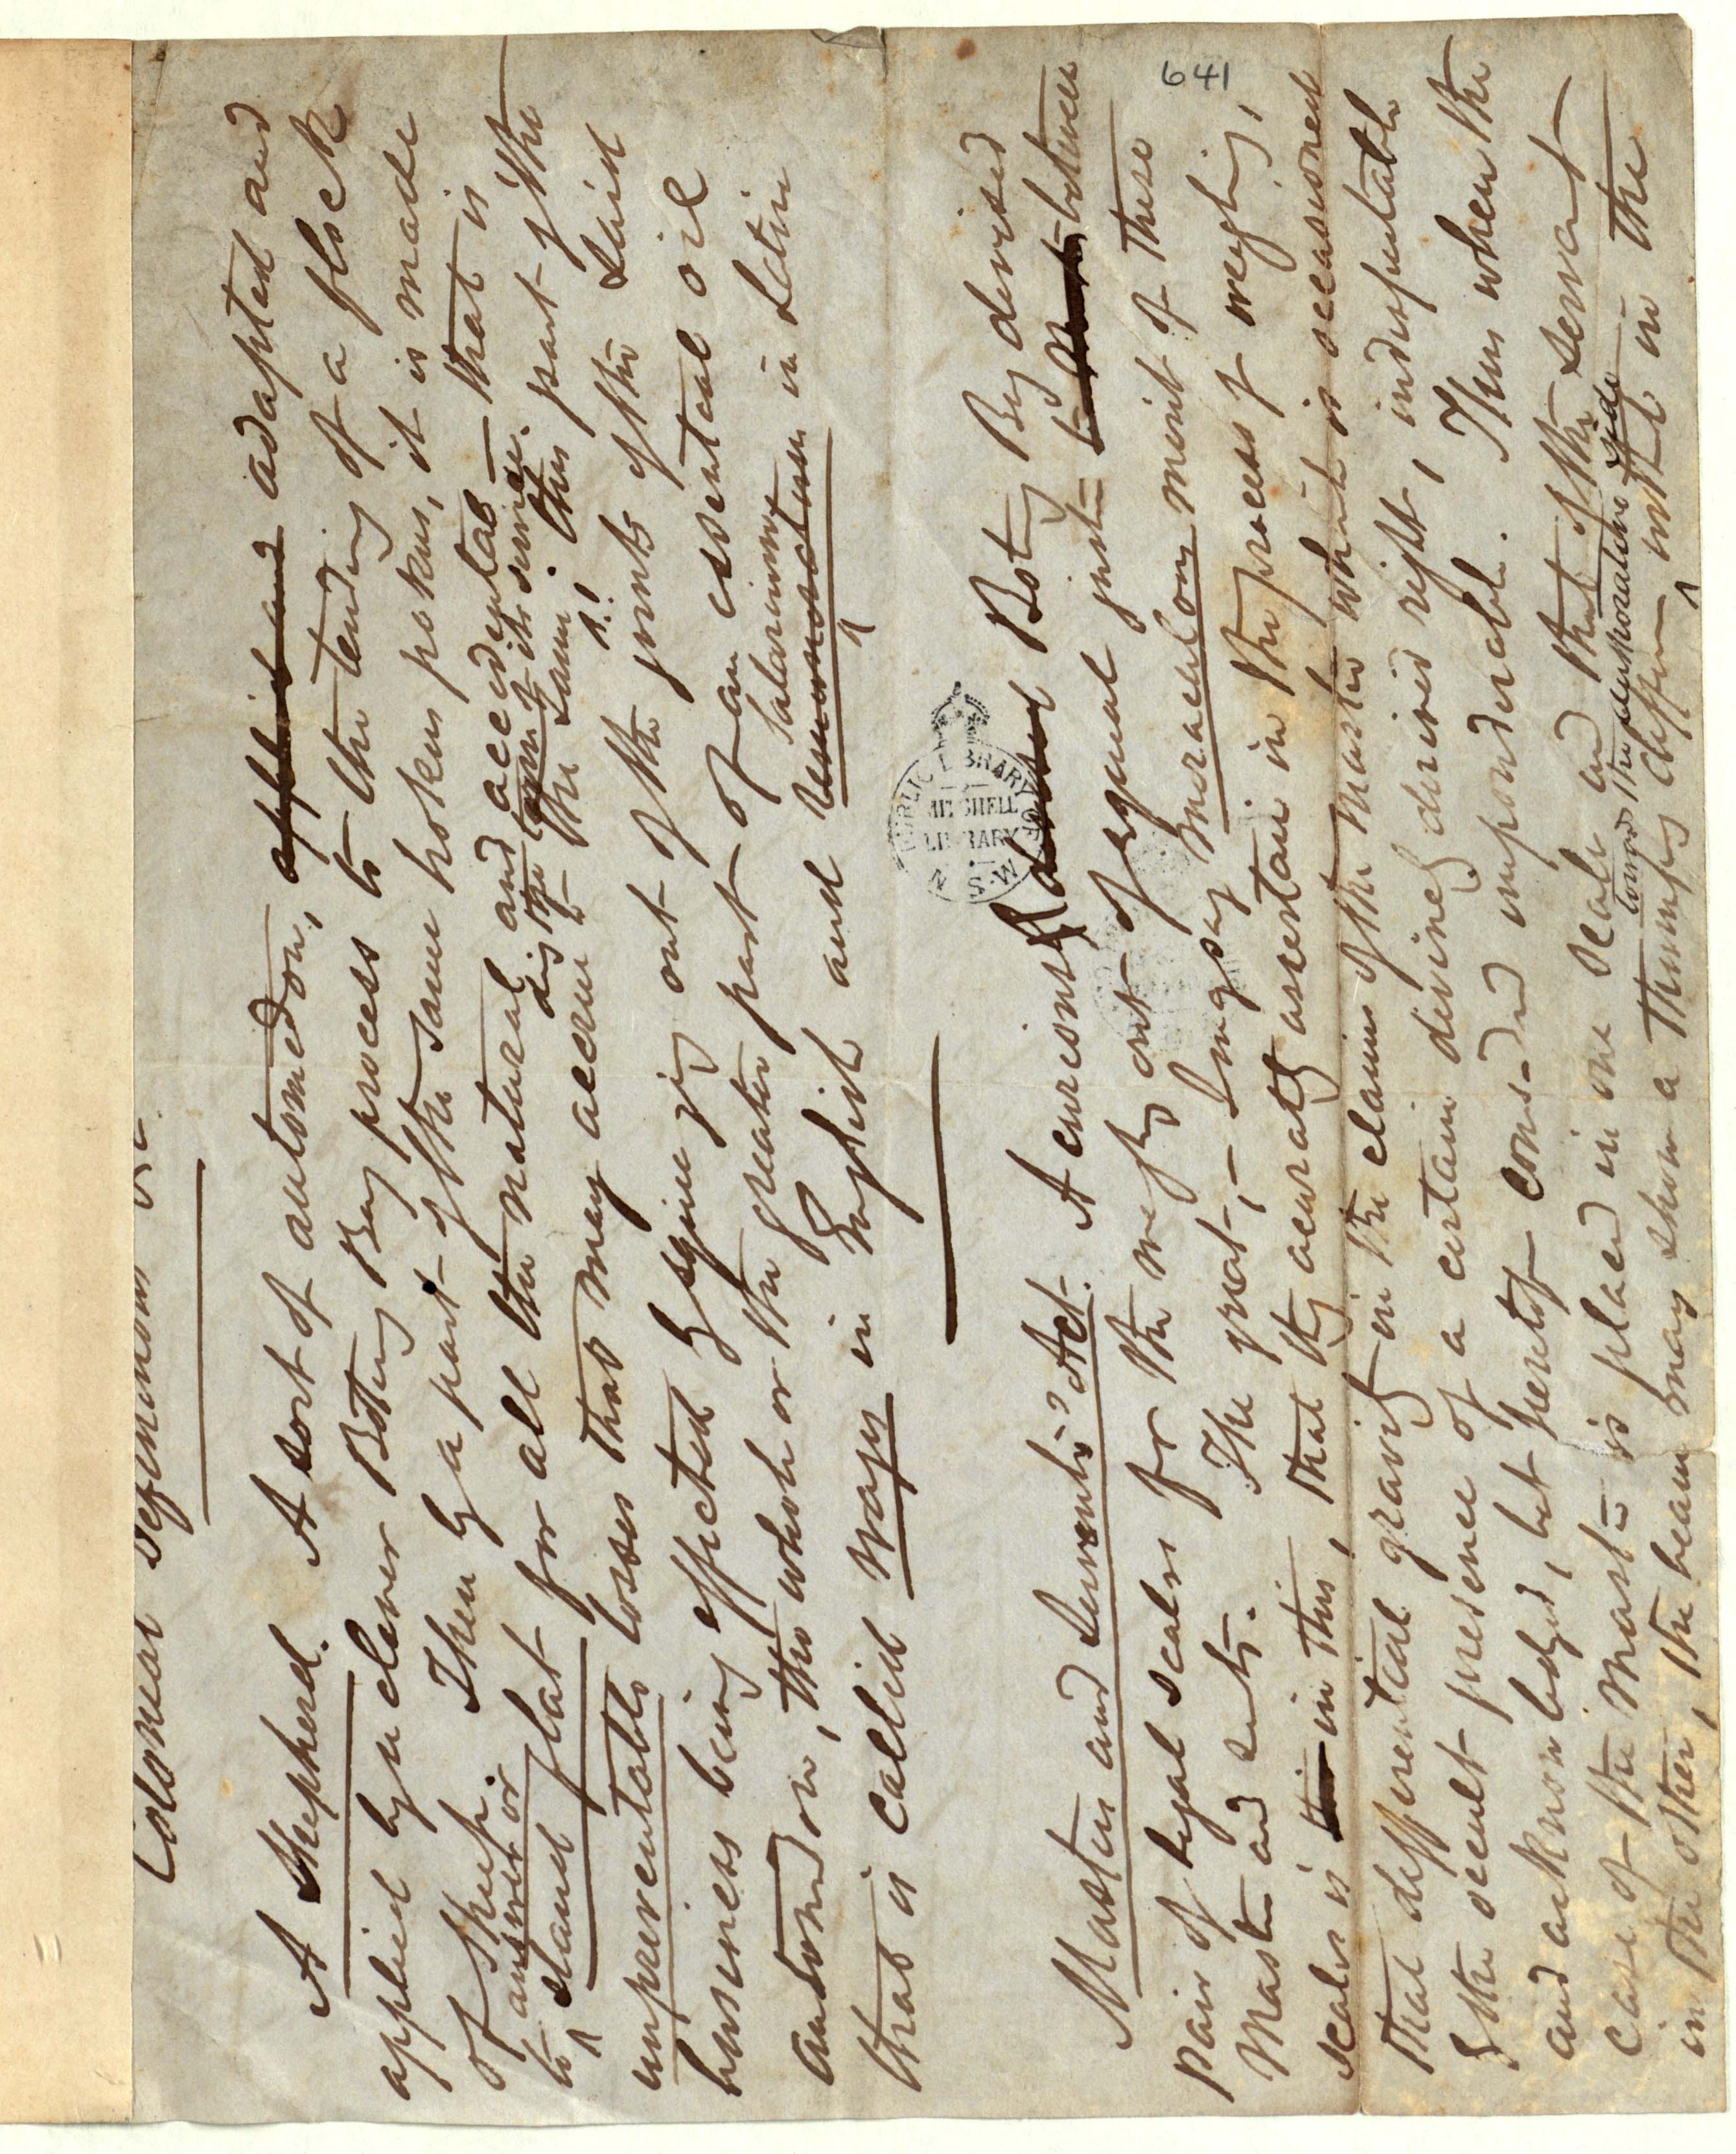 Colonial Definitions &c.
A Shepherd. A sort of automedon, applied and adapted and
applied by a clever Botany Bay process to the tending of a flock
of sheep. Then by a part of the same hokus pokus, it is made
to answer or stand flat for all the natural and accidental — that is
unpreventable losses that may accrue to the same; thus part of the
dig the command its service.
business being effected by squeezing out of the joints of the said
automedon, the whole or the greater part of an essential oil
that is called wages in English and Salarium in Latin
Masters and Servants' Act. A curious Botany Bay devised
pair of legal scales for the weighing out of equal justice between
Master and servts. The great, — I may say miraculous merit of these
scales is in this, that they accurately ascertain in the process of weighing,
that differential gravity in the claims of the Master which is occasioned
by the occult presence of a certain divinely derived right, indisputable
and acknowledged, but heretofore considered imponderable. Thus when the
case of the Master is placed in one scale and that of the servant
in the other, the beam may show a thumping difference with in the
towards the side
641
PUBLIC LIBRARY
MITCHELL
LIBRARY
OF N.S.W.